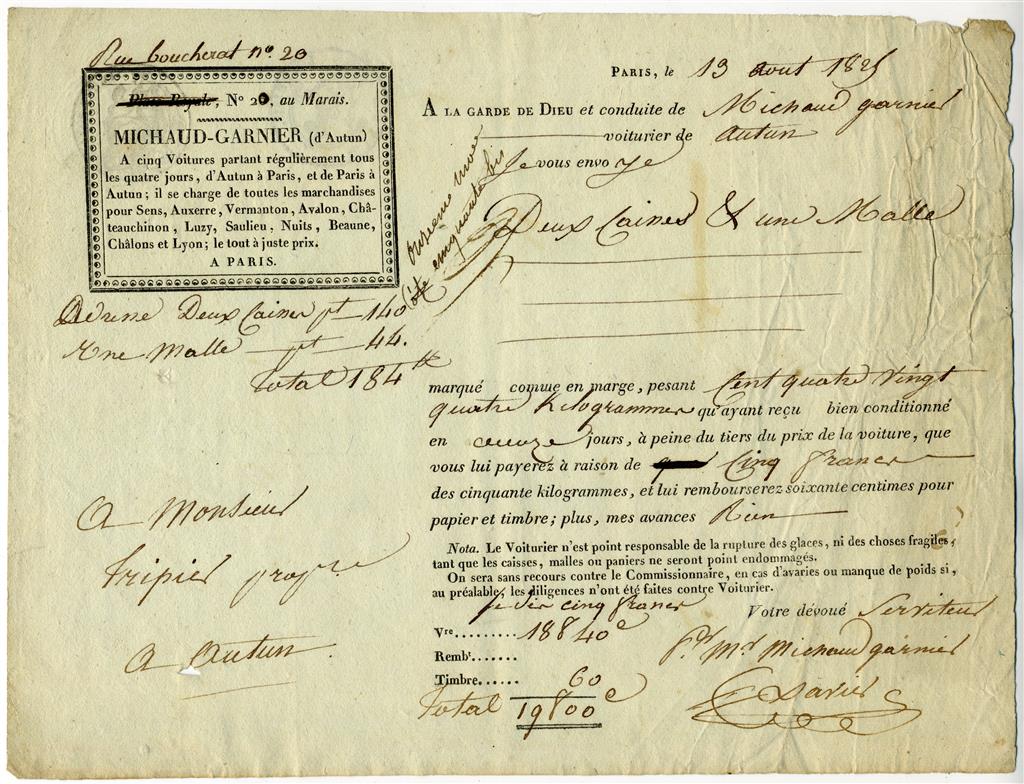 Rue boucherat no. 20
Place Royale, No 20, au Marais.
MICHAUD-GARNIER (d'Autun)
A cinq Voitures partant régulièrement tous
les quatre jours, d'Autun à Paris, et de Paris à
Autun; il se charge de toutes les marchandises
pour Sens, Auxerre, Vermanton, Avalon, Châ-
teauchinon, Luzy, Saulieu, Nuits, Beaune,
Châlons et Lyon; le tout à juste prix.
A PARIS.
Adresse Deux Caisses pt 140
Une Malle pt 44.
Total 184 lt
A Monsieur
Tripier
A Autun
PARIS, le 13 aout 1825
A LA GARDE DE DIEU et conduite de Michaud garnier
voiturier de autun
Je vous envoye
cinquante bis
Deux Caisses & une Malle
marqué comme en marge, pesant Cent quatre Vingt
quatre Kilogrammes qu'ayant reçu bien conditionné
en onze jours, à peine du tiers du prix de la voiture, que
vous lui payerez à raison de Cinq francs
des cinquante kilogrammes, et lui rembourserez soixante centimes pour
papier et timbre; plus, mes avances Rien
Nota. Le Voiturier n'est point responsable de la rupture des glaces, ni des choses fragiles,
tant que les caisses, malles ou paniers ne seront point endommagés.
On sera sans recours contre le Commissionnaire, en cas d'avaries ou manque de poids si,
au préalable, les diligences n'ont été faites contre Voiturier.
je dis cinq francs
Votre dévoué Serviteur
Vre......... 18 f 40 c
Pr Mr Michaud garnier
Rembt.......
Timbre...... 60
Total 19 f 00 c